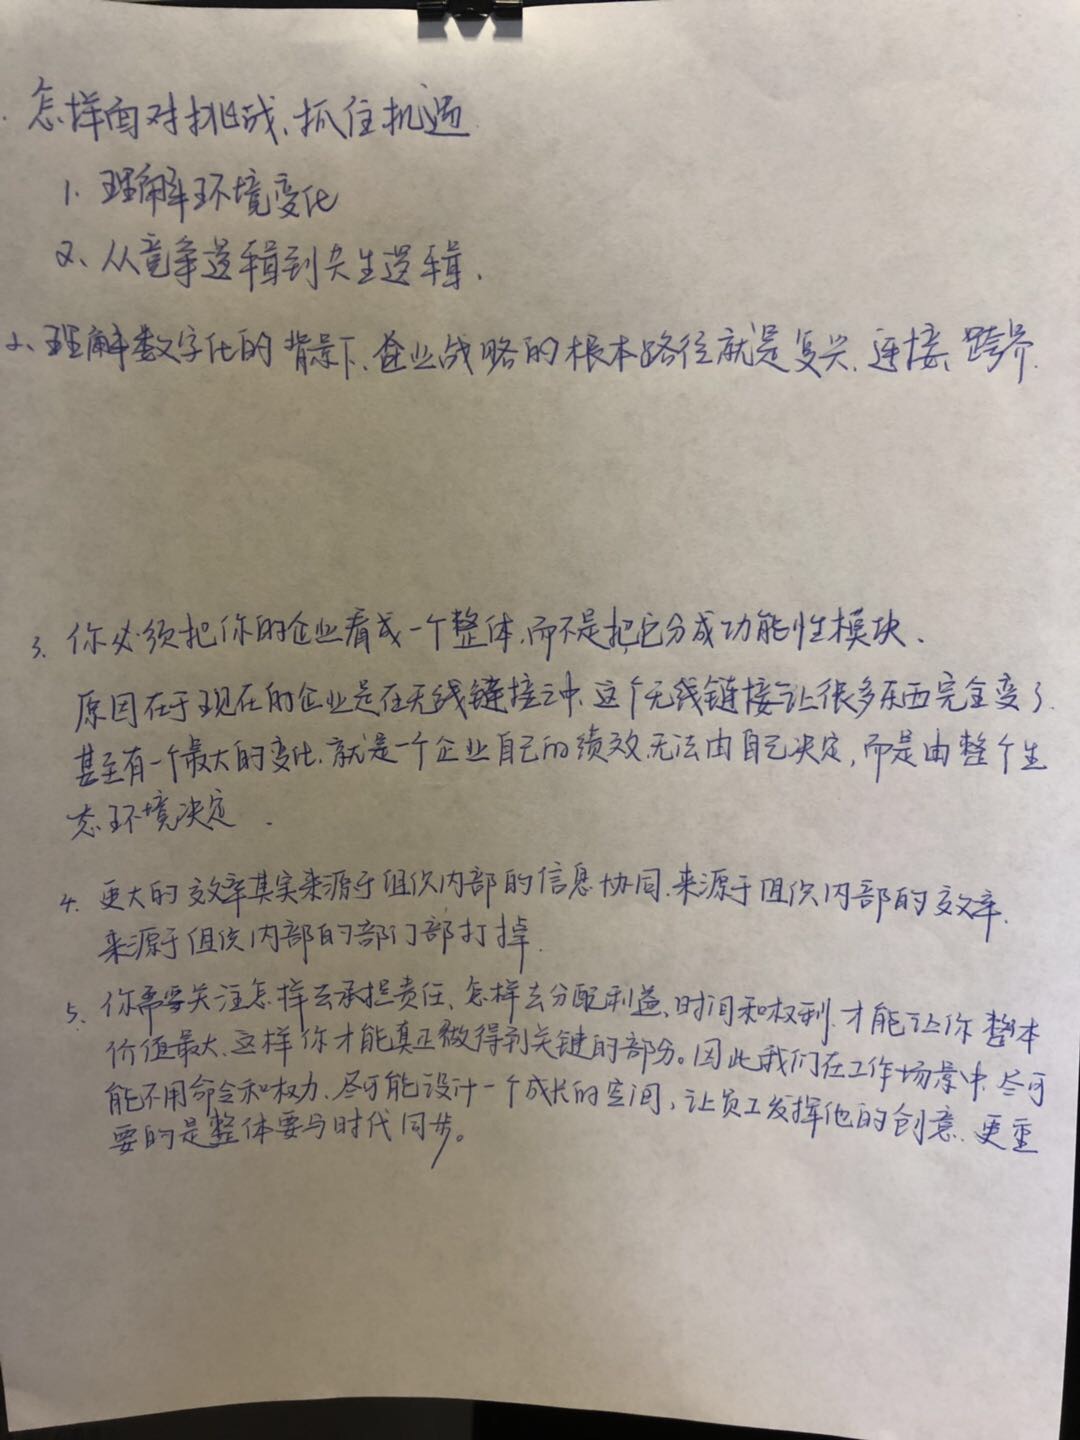 怎样面对挑战、抓住机遇
1. 理解环境变化
2、从竞争逻辑到共生逻辑.
2、理解数字化的背景下、企业战略的根本路径就是复兴、连接、跨界.
3. 你必须把你的企业看成一个整体,而不是把它分成功能性模块.
原因在于现在的企业是在无线链接之中,这个无线链接让很多东西完全变了.
甚至有一个最大的变化,就是一个企业自己的绩效,无法由自己决定,而是由整个生
态环境决定.
4. 更大的效率其实来源于组织内部的信息协同.来源于组织内部的效率.
来源于组织内部的部门部打掉.
5、你需要关注怎样去承担责任、怎样去分配利益、时间和权利.才能让你整本
价值最大、这样你才能真正做得到关键的部分。因此我们在工作场景中,尽可
能不用命令和权力、尽可能设计一个成长的空间,让员工发挥他的创意、更重
要的是整体要与时代同步。